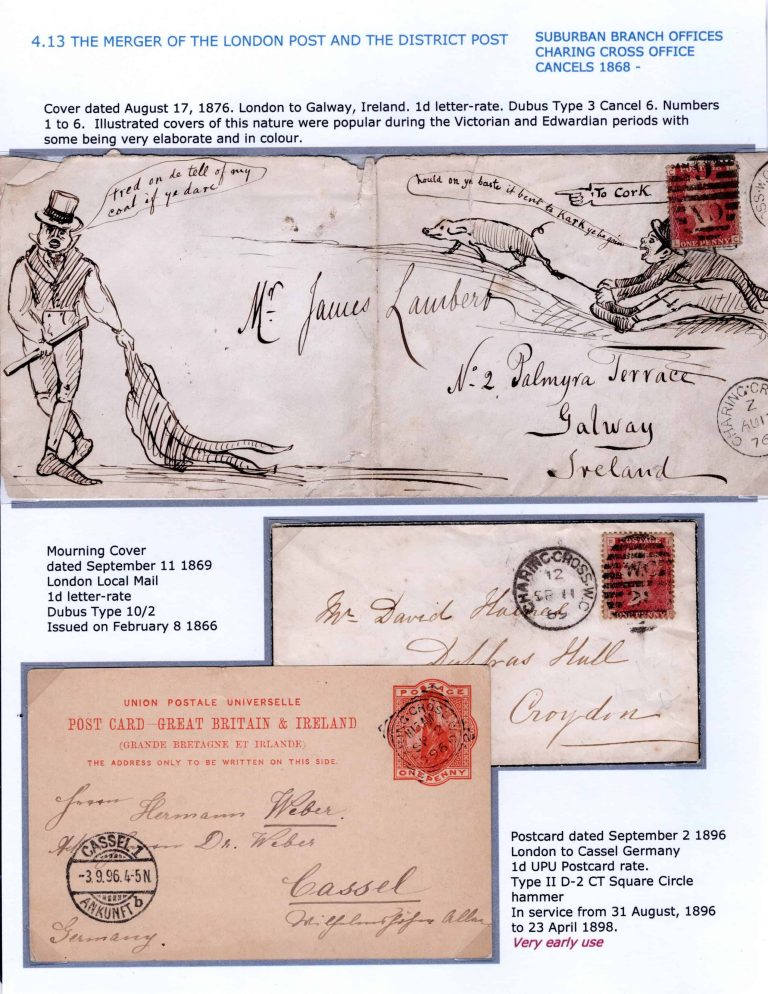 4.13 THE MERGER OF THE LONDON POST AND THE DISTRICT POST
SUBURBAN BRANCH OFFICES
CHARING CROSS OFFICE
CANCELS 1868 -
Cover dated August 17, 1876. London to Galway, Ireland. 1d letter-rate. Dubus Type 3 Cancel 6. Numbers
1 to 6.  Illustrated covers of this nature were popular during the Victorian and Edwardian periods with
some being very elaborate and in colour.
tred on de tell of my
coat if ye dare
hould on ye baste it bent to
To Cork
ONE PENNY
Mr. James Lambert
No. 2 Palmyra Terrace
Galway
Ireland
CHARING·CR
Z
AU 17
76
Mourning Cover
dated September 11 1869
London Local Mail
1d letter-rate
Dubus Type 10/2
Issued on February 8 1866
CHARING·CROSS·W.C
12
SP 11
69
POSTAGE
W.C
Mr. David
Hall
Croydon
UNION POSTALE UNIVERSELLE
POST CARD–GREAT BRITAIN & IRELAND
(GRANDE BRETAGNE ET IRLANDE)
THE ADDRESS ONLY TO BE WRITTEN ON THIS SIDE.
POSTAGE
ONE PENNY
Herrn Hermann Weber.
Dr. Weber
Cassel
Wilhelmshöher Allee
Germany.
CASSEL 1
-3.9.96.4-5N
ANKUNFT b
Postcard dated September 2 1896
London to Cassel Germany
1d UPU Postcard rate.
Type II D-2 CT Square Circle
hammer
In service from 31 August, 1896
to 23 April 1898.
Very early use